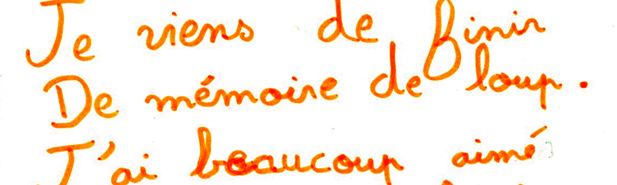 Je viens de finir
De mémoire de loup.
J'ai beaucoup aimé